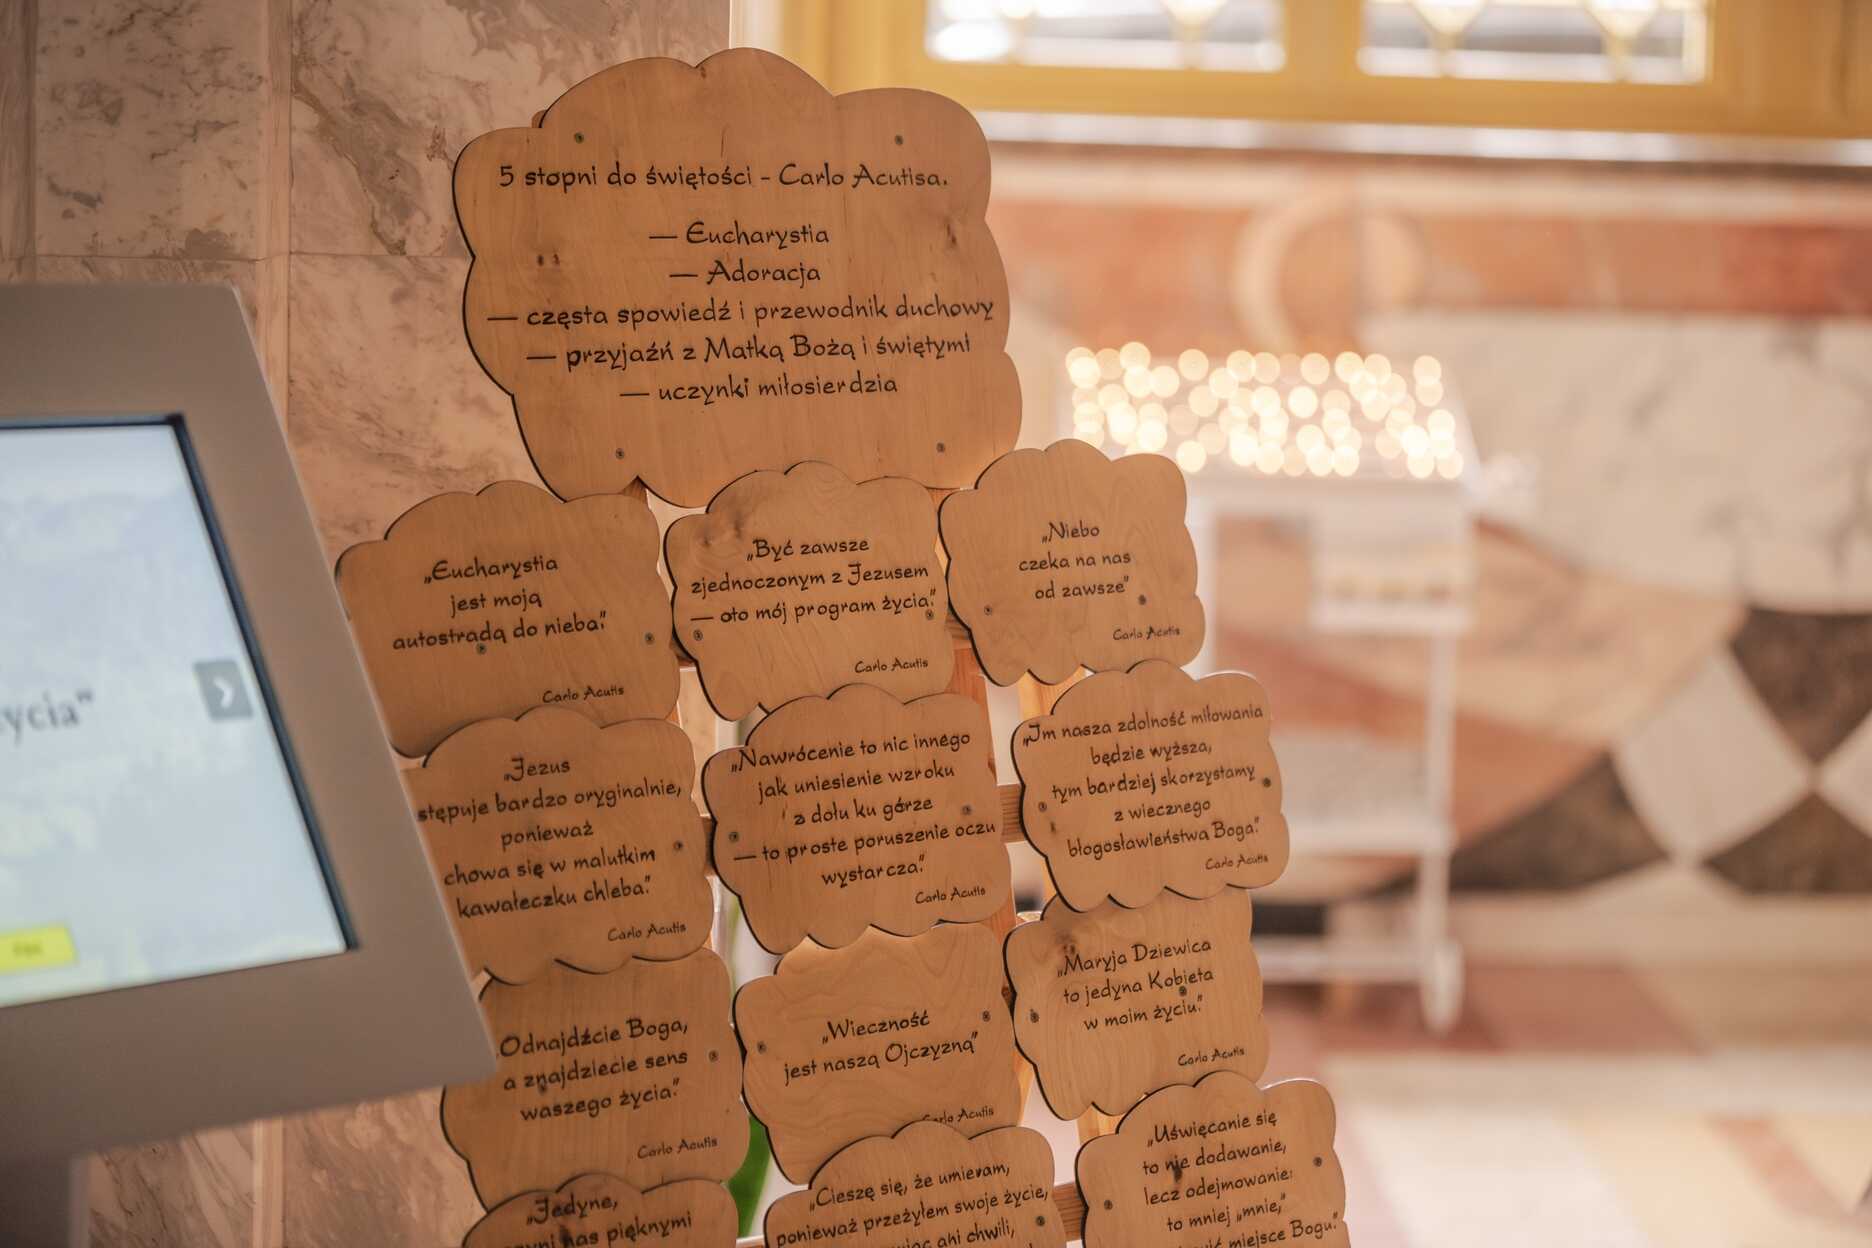 5 stopni do świętości - Carlo Acutisa.
— Eucharystia
— Adoracja
— częsta spowiedź i przewodnik duchowy
— przyjaźń z Matką Bożą i świętymi
— uczynki miłosierdzia
„Eucharystia
jest moją
autostradą do nieba.”
Carlo Acutis
„Być zawsze
zjednoczonym z Jezusem
— oto mój program życia.”
Carlo Acutis
„Niebo
czeka na nas
od zawsze”
Carlo Acutis
„Jezus
stępuje bardzo oryginalnie,
ponieważ
chowa się w malutkim
kawałeczku chleba.”
Carlo Acutis
„Nawrócenie to nic innego
jak uniesienie wzroku
z dołu ku górze
— to proste poruszenie oczu
wystarcza.”
Carlo Acutis
„Im nasza zdolność miłowania
będzie wyższa,
tym bardziej skorzystamy
z wiecznego
błogosławieństwa Boga.”
Carlo Acutis
„Odnajdźcie Boga,
a znajdziecie sens
waszego życia.”
Carlo Acutis
„Wieczność
jest naszą Ojczyzną”
Carlo Acutis
„Maryja Dziewica
to jedyna Kobieta
w moim życiu.”
Carlo Acutis
„Jedyne,
nas pięknymi
„Cieszę się, że umieram,
ponieważ przeżyłem swoje życie,
ani chwili,
„Uświęcanie się
to nie dodawanie,
lecz odejmowanie:
to mniej „mnie,”
miejsce Bogu.”
życia”